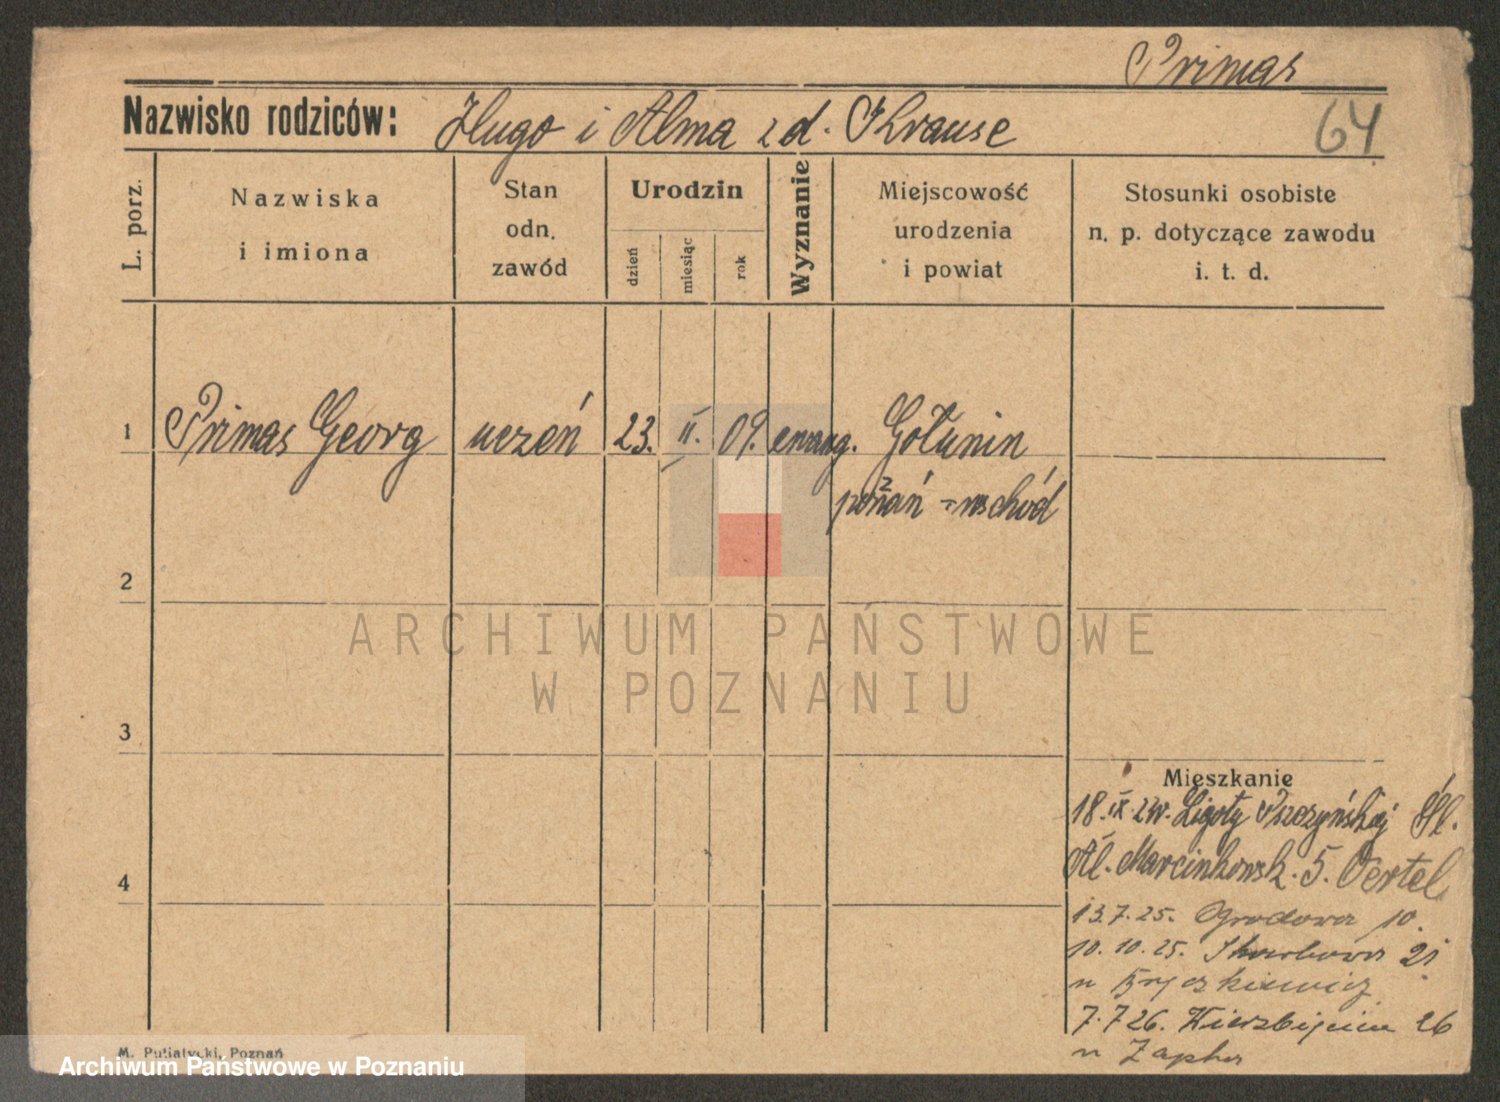 Primas
Nazwisko rodziców: Hugo i Alma z d. Krause
64
L. porz.
Nazwiska
i imiona
Stan
odn.
zawód
Urodzin
dzień
miesiąc
rok
Wyznanie
Miejscowość
urodzenia
i powiat
Stosunki osobiste
n. p. dotyczące zawodu
i. t. d.
1 Primas Georg uczeń 23. II. 09. ewang. Gołunin
poznań = wschód
2
ARCHIWUM PAŃSTWOWE
W POZNANIU
3
Mieszkanie
18. IX. 24 Ligoty Pszczyńskiej Śl.
Al. Marcinkowsk. 5. Oertel
4
13.7.25. Ogrodowa 10.
10.10.25. Skarbowa 21
7.7 26. Wierzbięcice 26
M. Putiatycki, Poznań
Archiwum Państwowe w Poznaniu